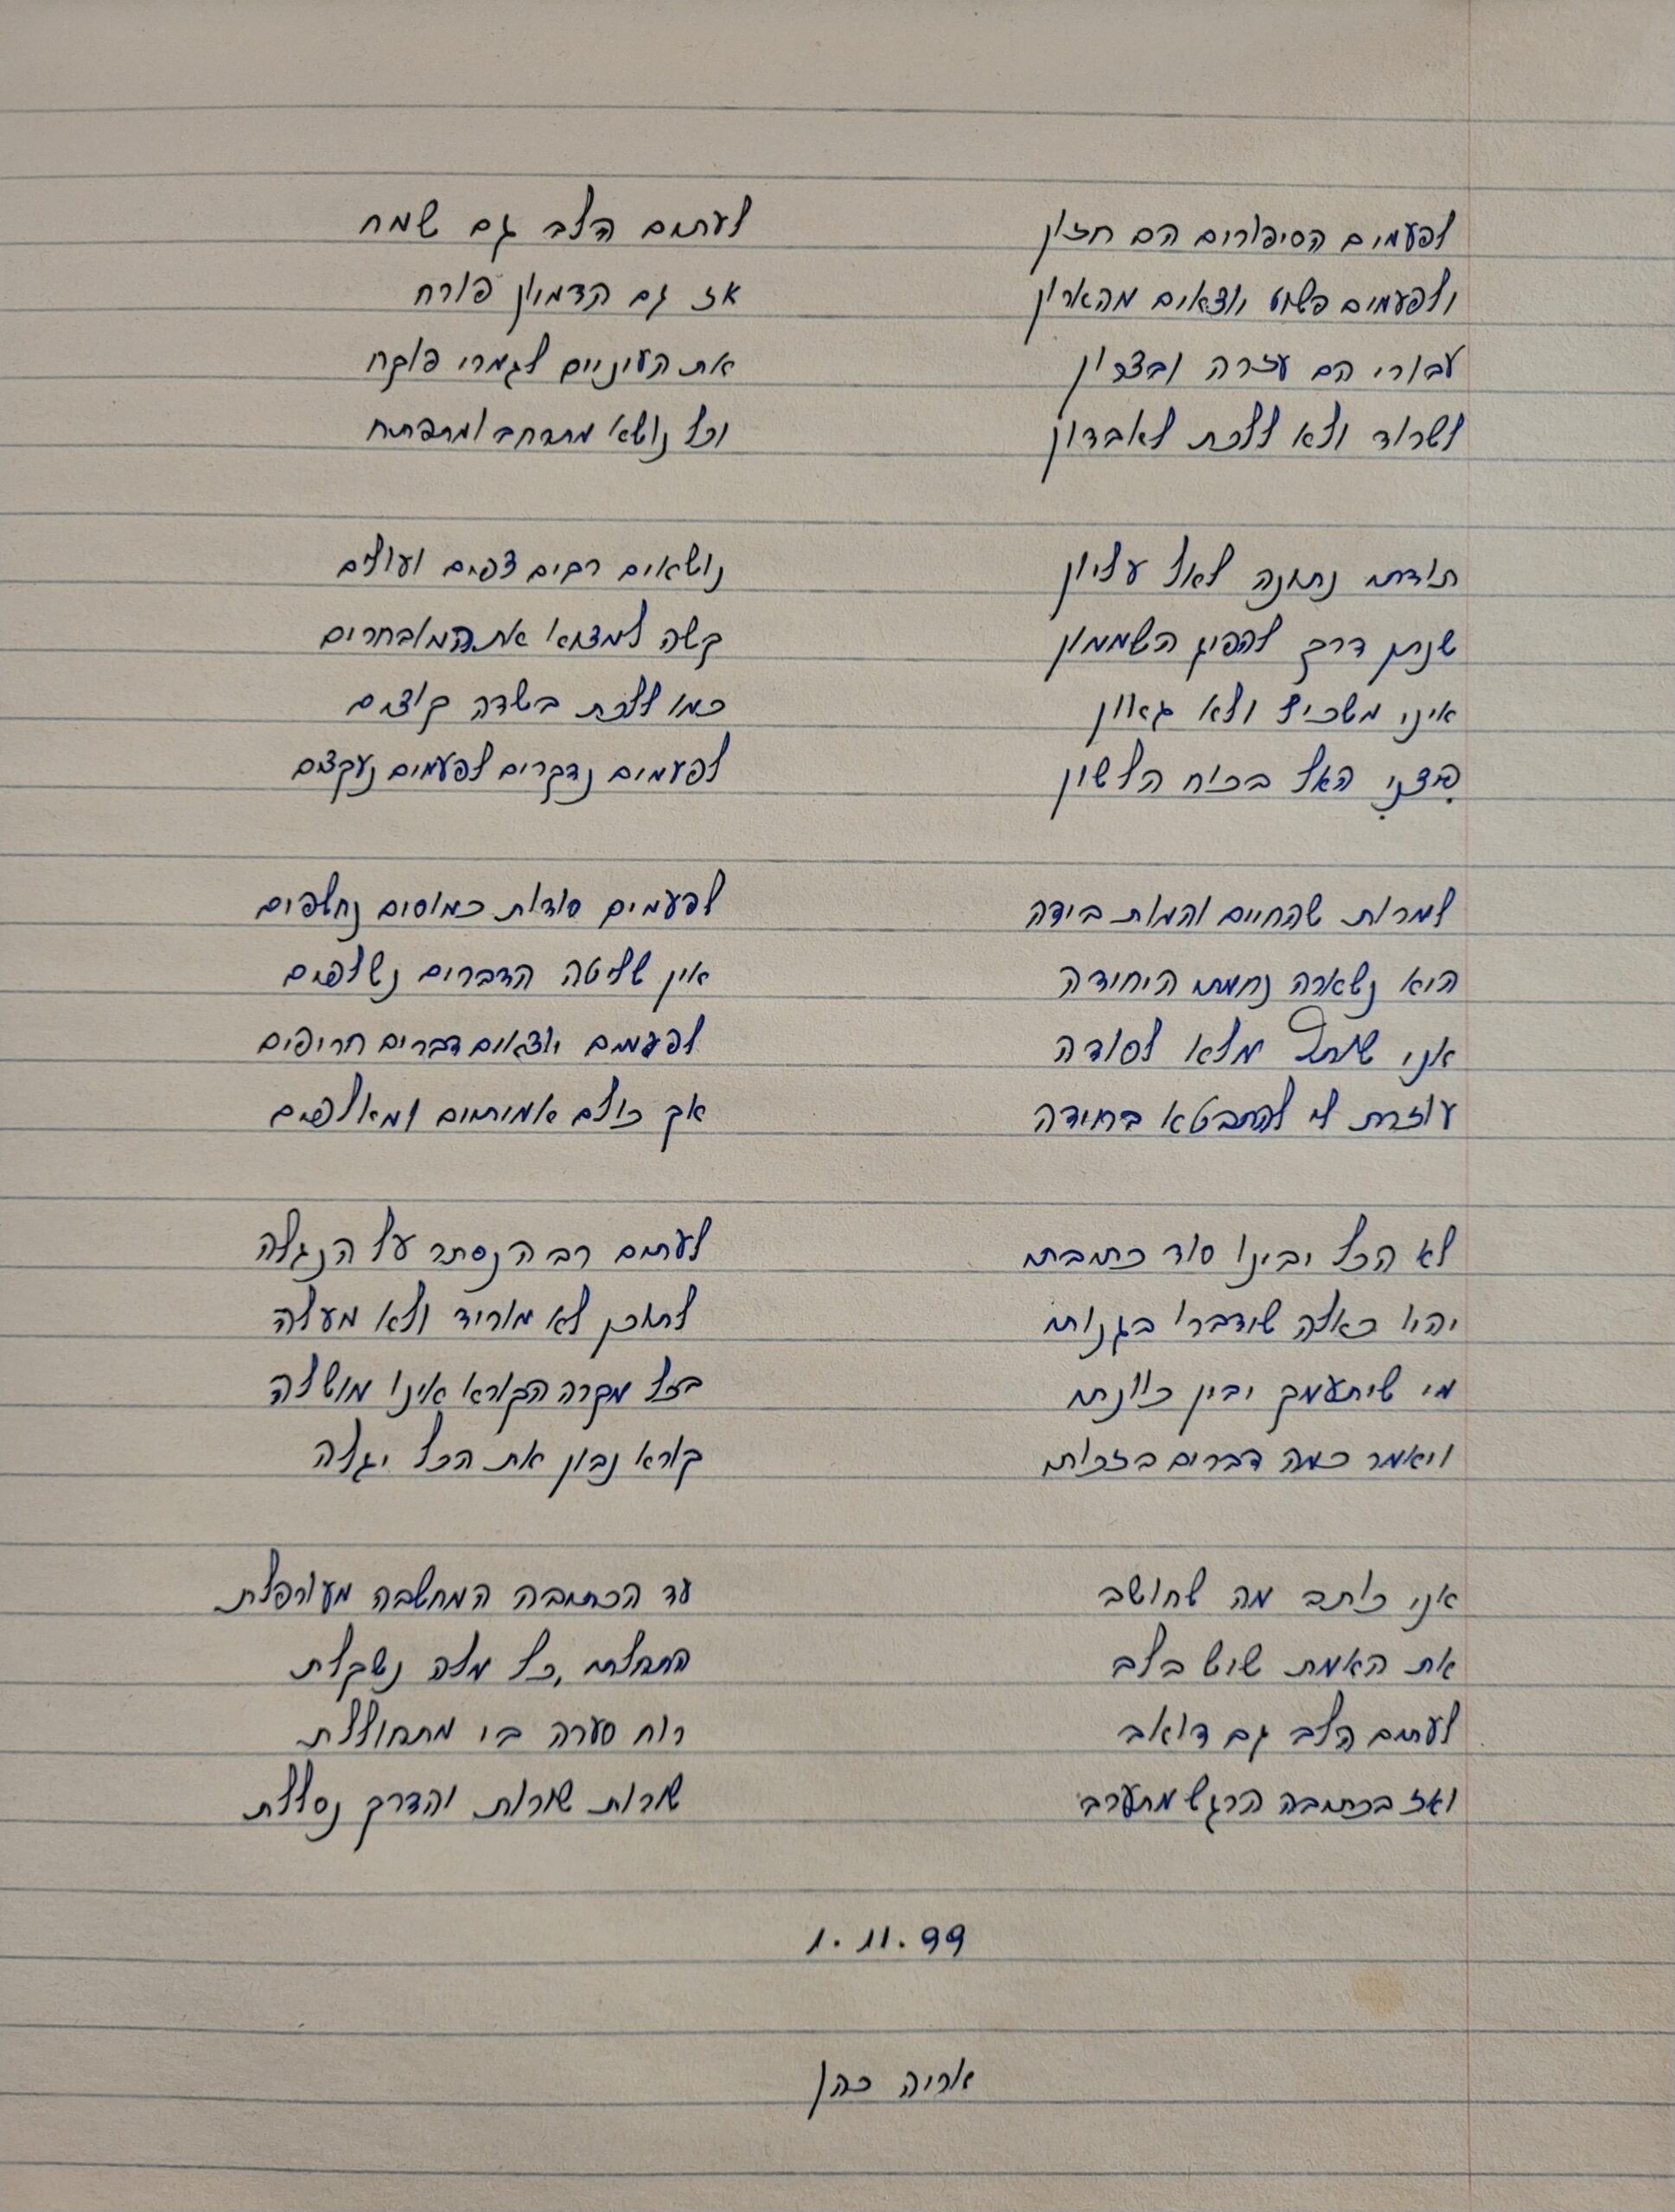 לפעמים הסיפורים הם חזון
ולפעמים פשוט יוצאים מהארון
עבורי הם עזרה ובצרון
לשרוד ולא ללכת לאבדון
תודתי נתונה לאל עליון
שנתן דרך להפיג השממון
אינני משכיל ולא גאון
פיצני האל בכוח הלשון
למרות שהחיים והמות בידה
היא נשארה נחמתי היחידה
אני שותל מלא לסודה
עוזרת לי להתבטא בחידה
לא הכל יבינו סוד כתיבתי
יהיו כאלה שידברו בגנותי
מי שיתעמק יבין כוונתי
ויאמר כמה דברים בזכותי
אני כותב מה שחושב
את האמת שיש בלב
לעתים הלב גם דואב
ואז בכתיבה הרגש מתערב
לעתים הלב גם שמח
אז גם הדמיון פורח
את העיניים לגמרי פוקח
וכל נושא מתרחב ומתפתח
נושאים רבים צפים ועולים
קשה למצוא את המובחרים
כמו ללכת בשדה קוצים
לפעמים נדקרים לפעמים נעקצים
לפעמים סודות כמוסים נחלפים
אין שליטה הדברים נשלפים
לפעמים יוצאים דברים חריפים
אך כולם אמיתיים ומאלפים
לעתים רב הנסתר על הנגלה
לתוכן לא מוריד ולא מעלה
בכל מקרה הקורא אינו מושלה
קורא נבון את הכל יגלה
עד הכתיבה המחשבה מעורפלת
התחלתי, כל מלה נשקלת
רוח סערה בי מתחוללת
שורות שורות והדרך נסללת
1.11.99
אריה כהן